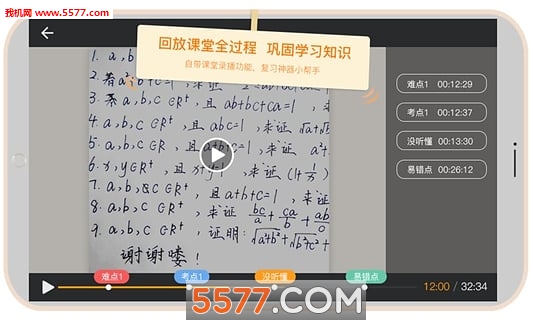 我机网
www.5577.com
回放课堂全过程 巩固学习知识
自带课堂录播功能、复习神器小帮手
1. a,b
2. 若a²+b²+c=1
3. 若a,b,c∈R⁺,且ab+bc+ca=1
4. a,b,c∈R⁺,且abc=1,求证√a+√b
5. a,b,c∈R⁺,且a+b+c=1,求证a²+
6. x,y∈R⁺,且x+y=1,求证(1+1/x)
7. a,b,c∈R⁺,且a+b+c=1,求证
8. a,b,c∈R⁺,求证 bc/a+ca/b+ab/
9. a,b,c∈R⁺,证明:√a²+b²+√b²+c²+
谢谢喽!
难点1 00:12:29
考点1 00:12:37
没听懂 00:13:30
易错点 00:26:12
难点1 考点1 没听懂 易错点
12:00 / 32:34
5577.COM